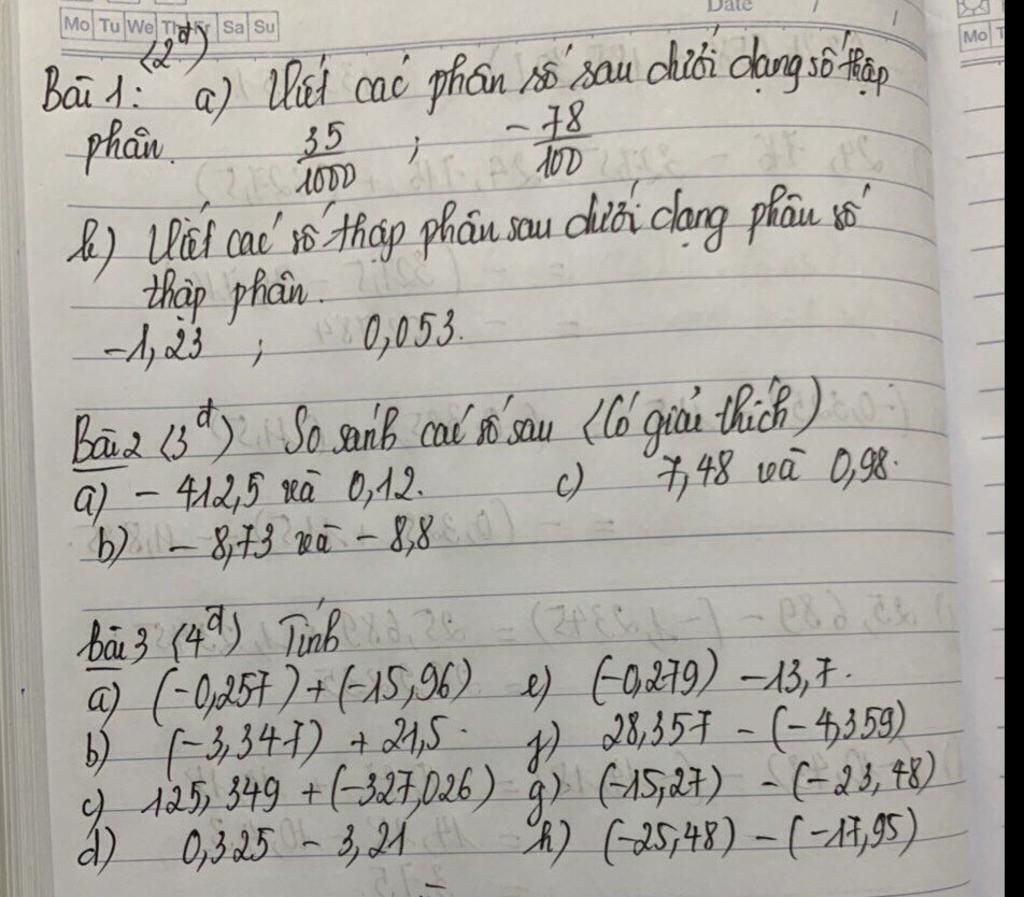 Date / /
Mo Tu We Th Fr Sa Su
Mo T
(2đ)
Bài 1: a) Viết các phân số sau dưới dạng số thập
phân. 35/1000 ; -78/100
b) Viết các số thập phân sau dưới dạng phân số
thập phân.
-1,23 ; 0,053.
Bài 2 (3đ) So sánh các số sau (Có giải thích)
a) - 412,5 và 0,12. c) 7,48 và 0,98.
b) - 8,73 và - 8,8
Bài 3 (4đ) Tính
a) (-0,257) + (-15,96) e) (-0,279) - 13,7.
b) (-3,347) + 21,5. f) 28,357 - (-4,359)
c) 125,349 + (-327,026) g) (-15,27) - (-23,48)
d) 0,325 - 3,21 h) (-25,48) - (-17,95)